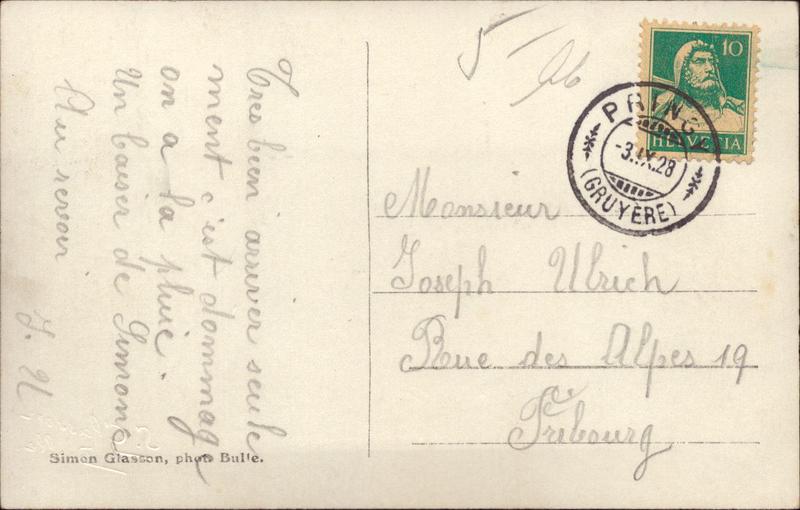 Tres bien arriver seule
ment c'est dommag
on a la pluie
Un baiser de Simone
Au revoir
J. U
Simon Glasson, photo Bulle.
10
HELVETIA
PRINGY
-3.IX.28
(GRUYÈRE)
Monsieur
Joseph Ulrich
Rue des Alpes 19
Fribourg